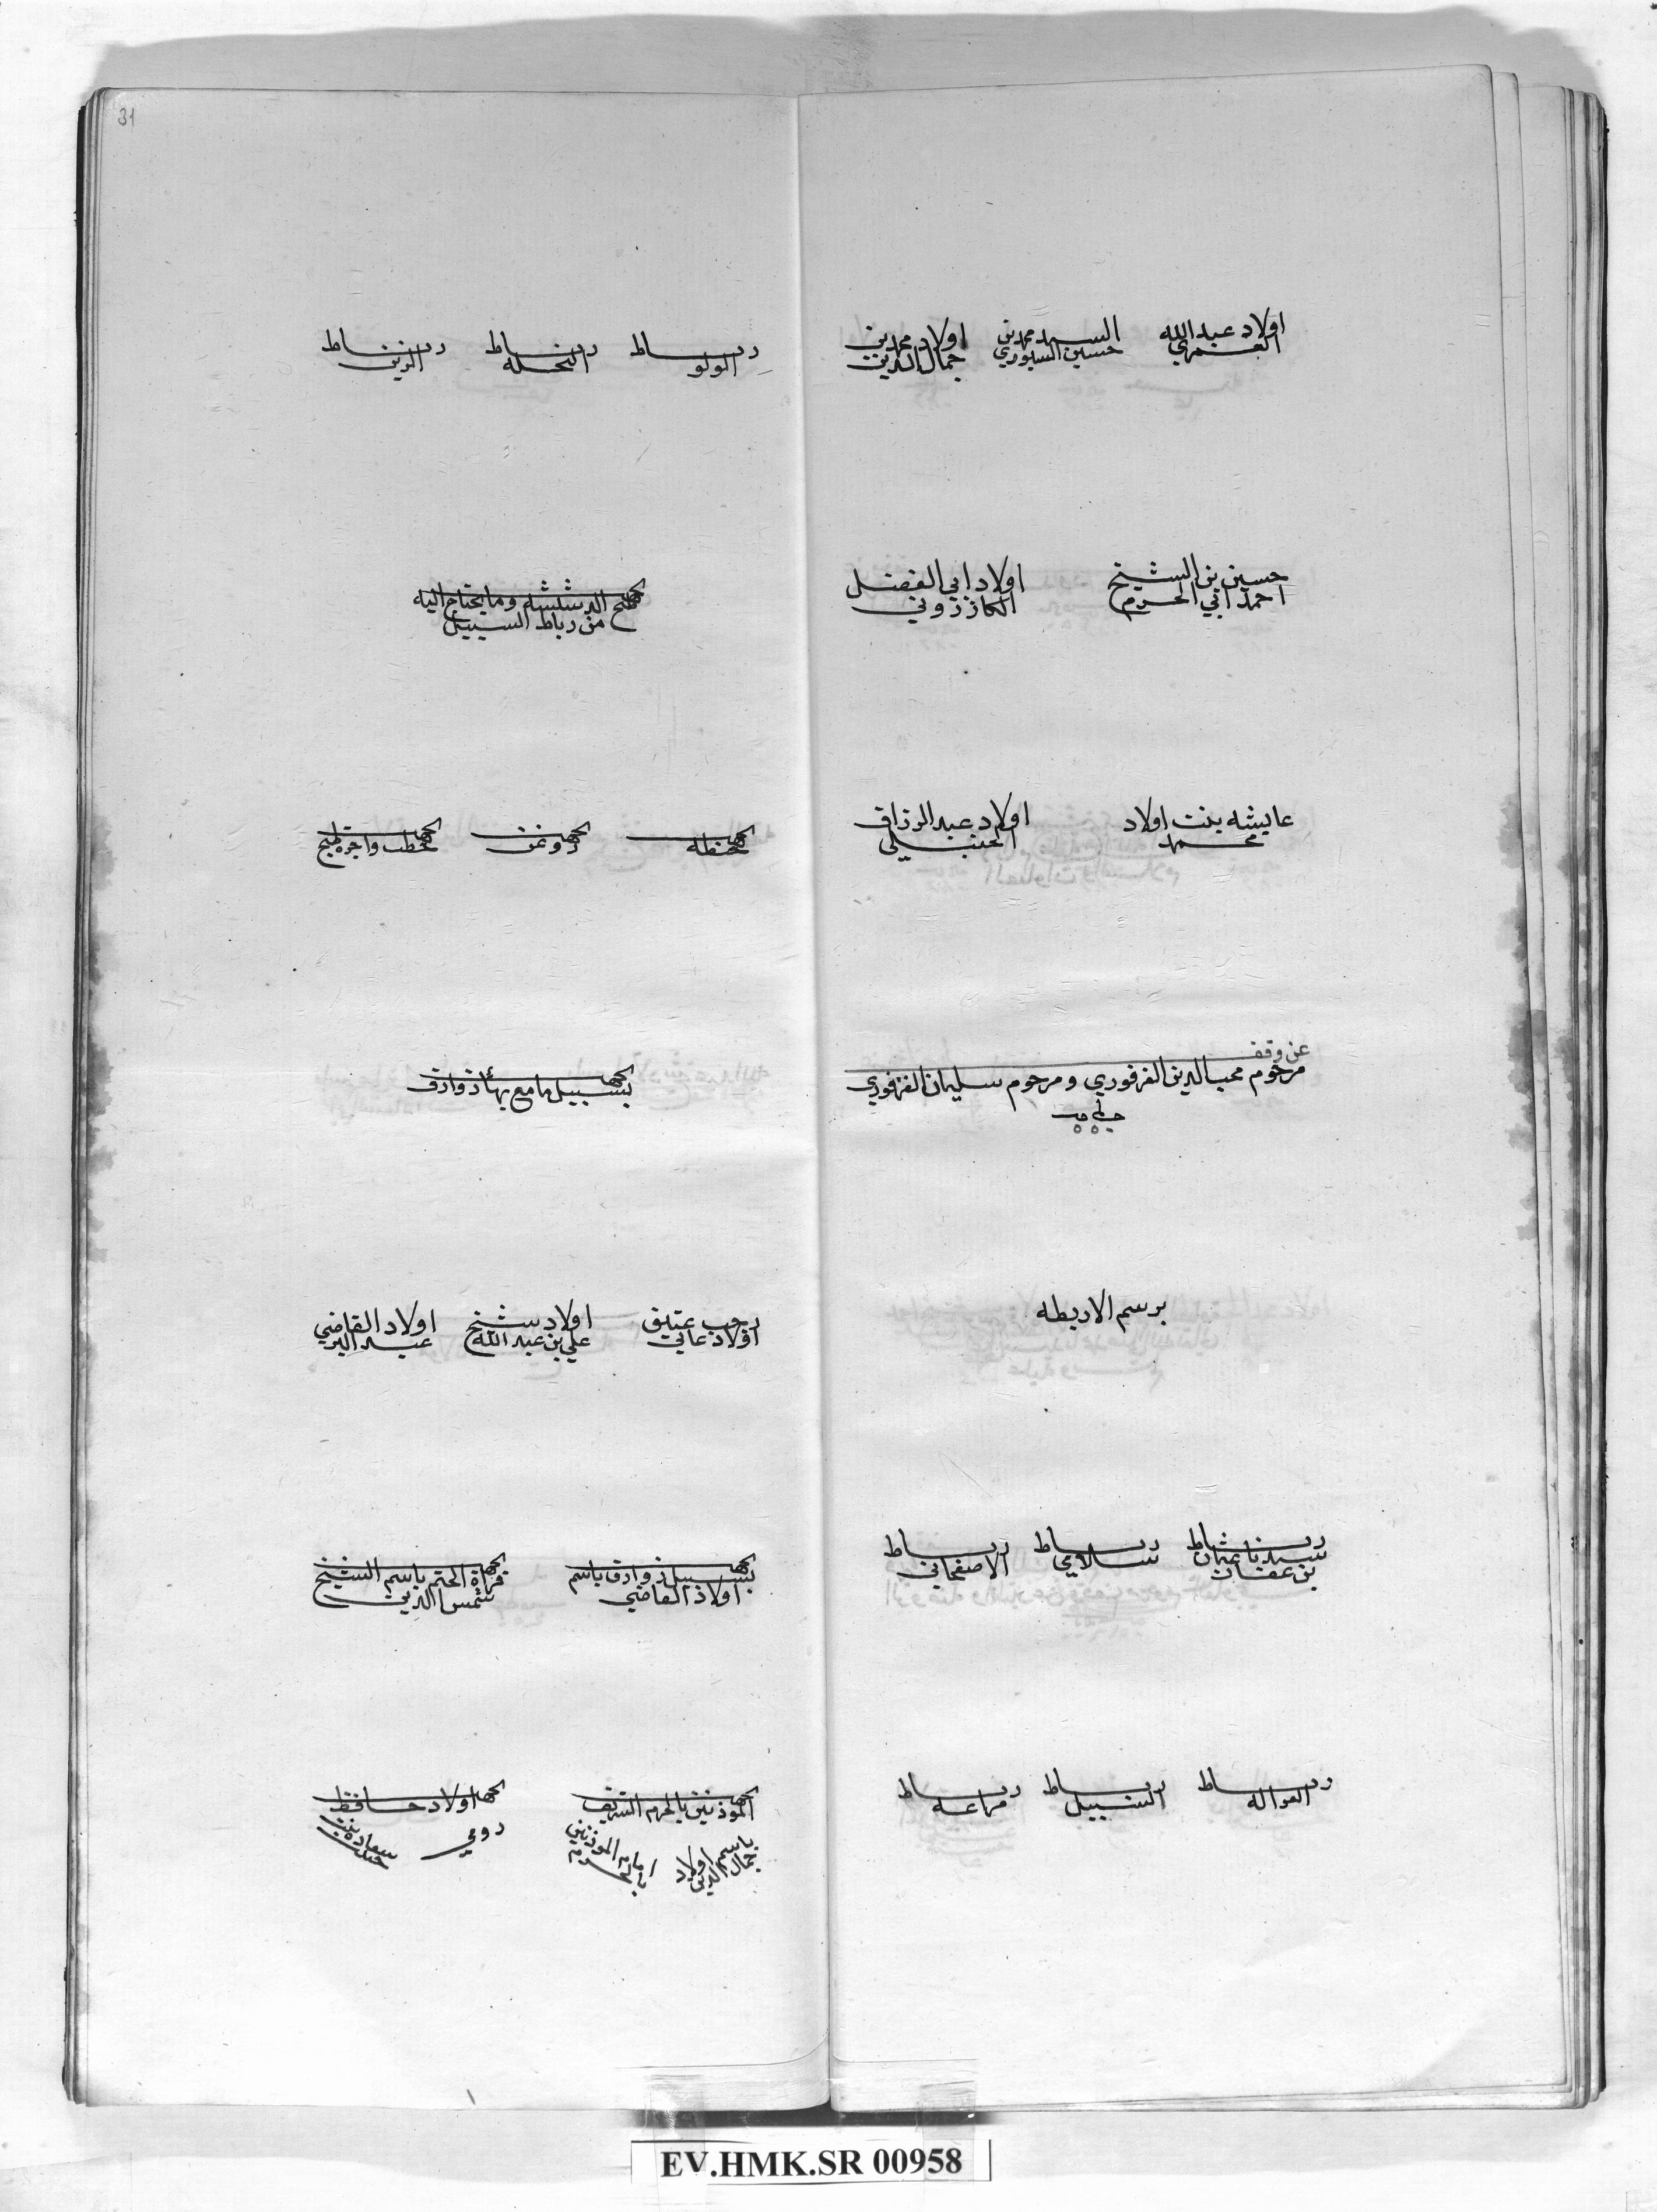 اولاد عبد الله
العمري
السيد محمد بن
حسين السبوري
اولاد محمد بن
جمال الدين
حسين بن الشيخ
احمد ابي الحرم
اولاد ابي الفضل
الكازروني
عايشه بنت اولاد
محمد
اولاد عبد الرزاق
الحنبلي
عن وقف
مرحوم محب الدين الفرفوري ومرحوم سليمان الفرفوري
برسم الاربطه
رباط
سيدنا عثمان
بن عفان
رباط
سلامي
رباط
الاصفهاني
رباط
العواله
رباط
السبيل
رباط
مراغه
31
رباط
الولو
رباط
النخله
رباط
الزين
طبخ الدشيشه وما يحتاج اليه
من رباط السبيل
بجهة
حنطه
بجهة
بجهة
حطب واجرة طبخ
بجهة
رجب عتيق
اولاد عاتي
اولاد شيخ
علي بن عبد الله
اولاد القاضي
عبد البر
بجهة
سبيل زوارق باسم
اولاد القاضي
بجهة
قراة الختم باسم الشيخ
شمس الدين
بجهة
الموذنين بالحرم الشريف
باسم اولاد
جمال الدين
امام الموذنين
بالحرم
بجهة
اولاد حافظ
رومي
سعاده بنت
EV.HMK.SR 00958